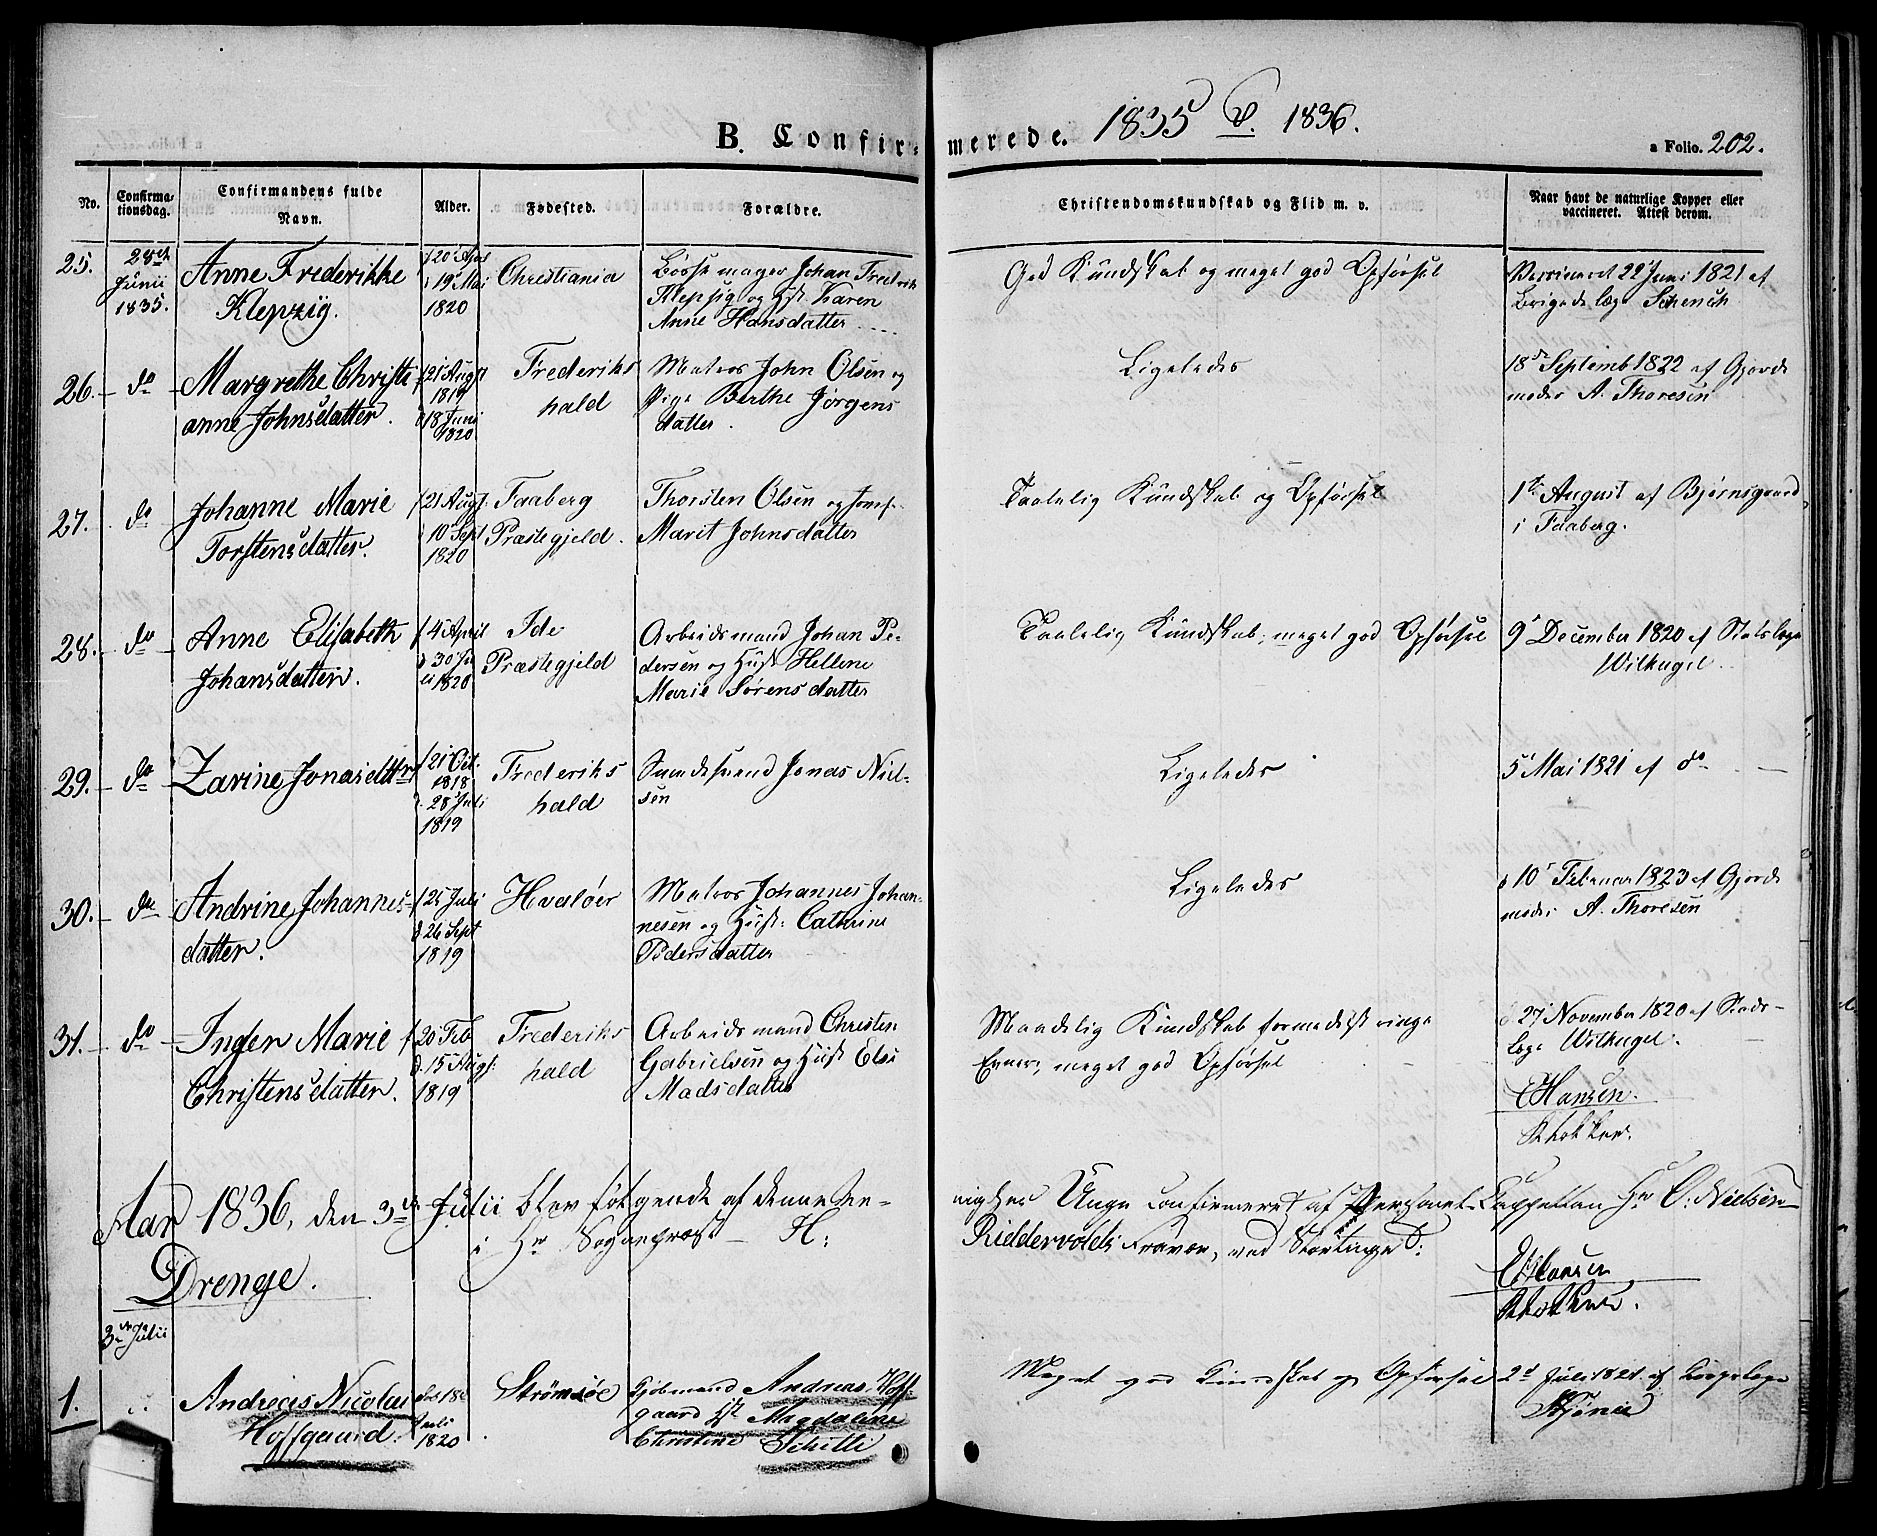 B. Confirmerede. 1835 & 1836.
a Folio. 202.
No.
Confirmationsdag.
Confirmandens fulde Navn.
Alder.
Fødested.
Forældre.
Christendomskundskab og Flid m. v.
Naar havt de naturlige Kopper eller vaccineret. Attest derom.
25.
28de
Junii
1835.
Anne Frederikke
Klepzig.
f 20 April
d 19 Mai
1820
Christiania
Bøssemager Johan Frederik
Klepzig og Hst. Karen
Anne Hansdatter
God Kundskab og meget god Opførsel
Vaccineret 22 Juni 1821 af
Brigadelæge Schench
26. do
Margrethe Christi
anne Johnsdatter.
f 21 Augt
1819
d 18 Juni
1820
Frederiks
hald
Matros John Olsen og
Pige Berthe Jørgens
datter.
Ligeledes
18de Septemb 1822 af Gjorde
moder A. Thoresen
27. do
Johanne Marie
Torstensdatter.
f 21 Augt:
d 10 Sept
1820
Faaberg
Præstegjeld.
Thorsten Olsen og
Marit Johnsdatter
Taalelig Kundskab og Opførsel
1ste August af Bjørnsgaard
i Faaberg.
28. do
Anne Elisabeth
Johansdatter.
f 4 April
d 30 Ju
li 1820
Ide
Præstegjeld
Arbeidsmand Johan Pe-
dersen og Hust Hellene
Marie Sørensdatter
Taalelig Kundskab, meget god Opførsel
9 December 1820 af Stadslæge
Wilhugel.
29. do
Zarine Jonasdttr
f 21 Oct.
1818
d. 28 Juli
1819
Frederiks
hald
Jonas Niel-
sen
Ligeledes
5 Mai 1821 af do
30. do
Andrine Johannes-
datter.
f 25 Juli
d 26 Sept
1819
Hvaløer
Matros Johannes Johan-
nesen og Hust: Cathrine
Pedersdatter
Ligeledes
d 10 Februar 1823 af Gjorde
moder A. Thoresen
31. do
Inger Marie
Christensdatter.
f 20 Feb
d. 15 Augt:
1819
Frederiks
hald
Arbeidsmand Christen
Gabrielsen og Hust Else
Madsdatter
Maadelig Kundskab formedelst ringe
Evner, meget god Opførsel
d 27 November 1820 af Stads-
læge Wilhugel.
C Hansen.
Klokker.
Aar 1836, den 3de Julii blev følgende af denne Me-
nigheds Unge confirmeret af Personel-Cappellan Hr C: Nielsen
i Hr Sogneprost H:
Riddervolds Fravær, ved Stortinget:
C Hansen
Klokker.
Drenge.
3die Julii
1.
Andreas Nicolai
Hoffgaard.
1820
Strømsøe
Kjøbmand Andreas Hoff-
gaard Hst Magdaline
Christine Schitte
Meget god Kundskab og Opførsel
2d Juli 1821 af Corpslæge